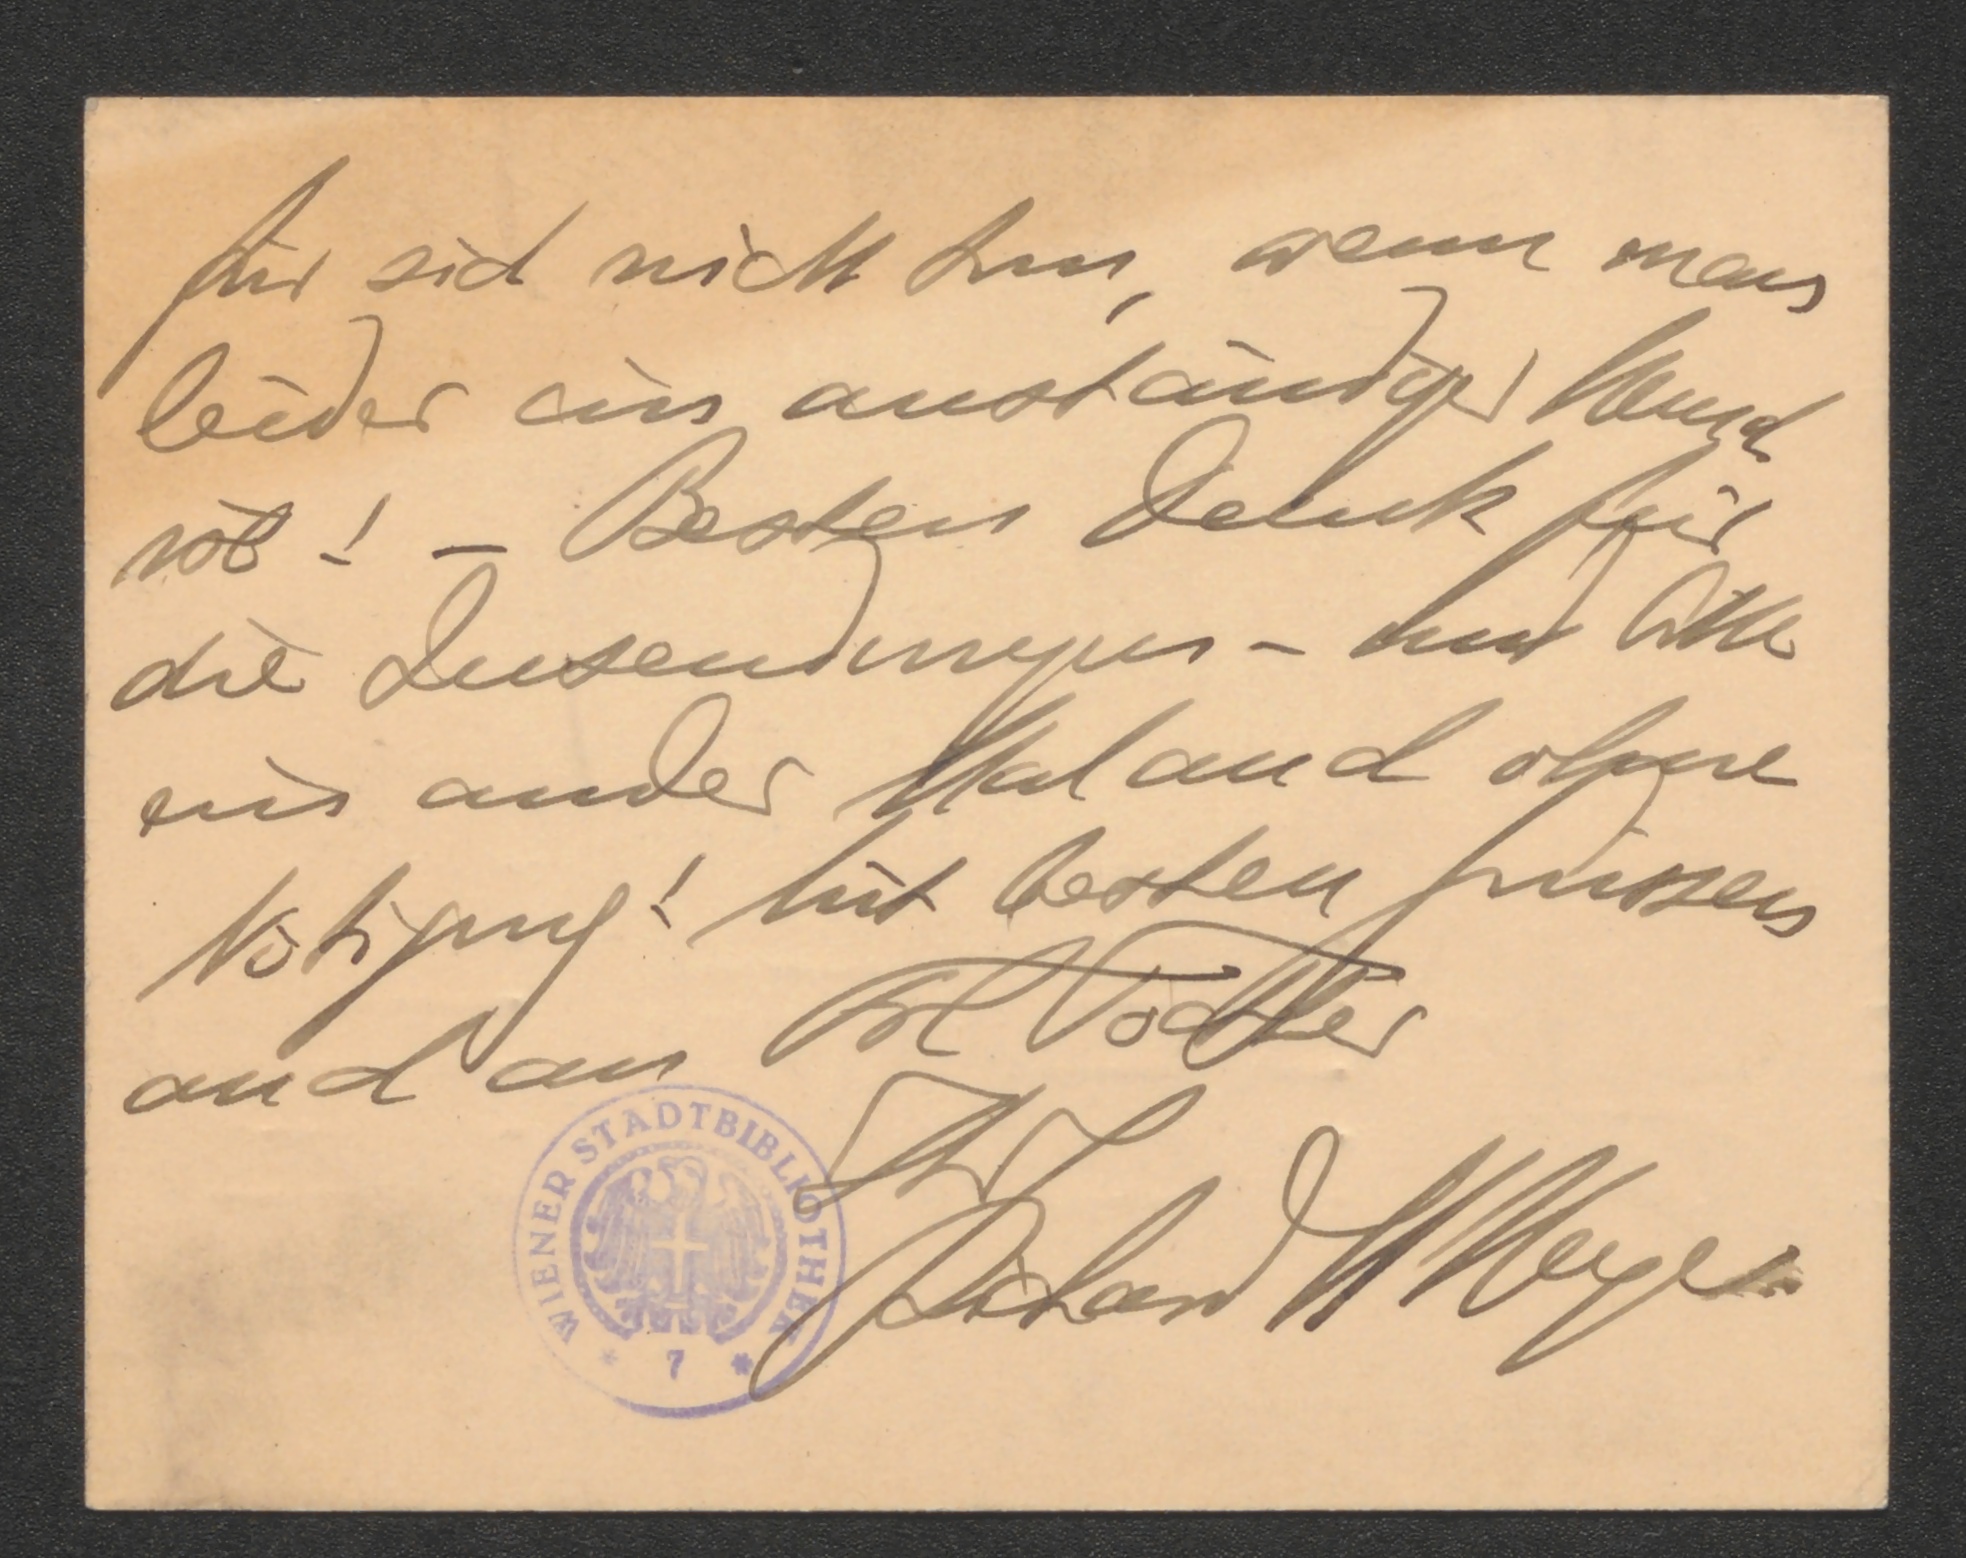 für sich nicht tun, wenn man
leider ein anständiger Mensch
ist! – Besten Dank für
die Zusendungen – und bitte
ein ander Mal auch ohne
Nötigung! Mit besten Grüssen
auch an Frl
Ihr
Richard M Meyer
WIENER STADTBIBLIOTHEK
* 7 *